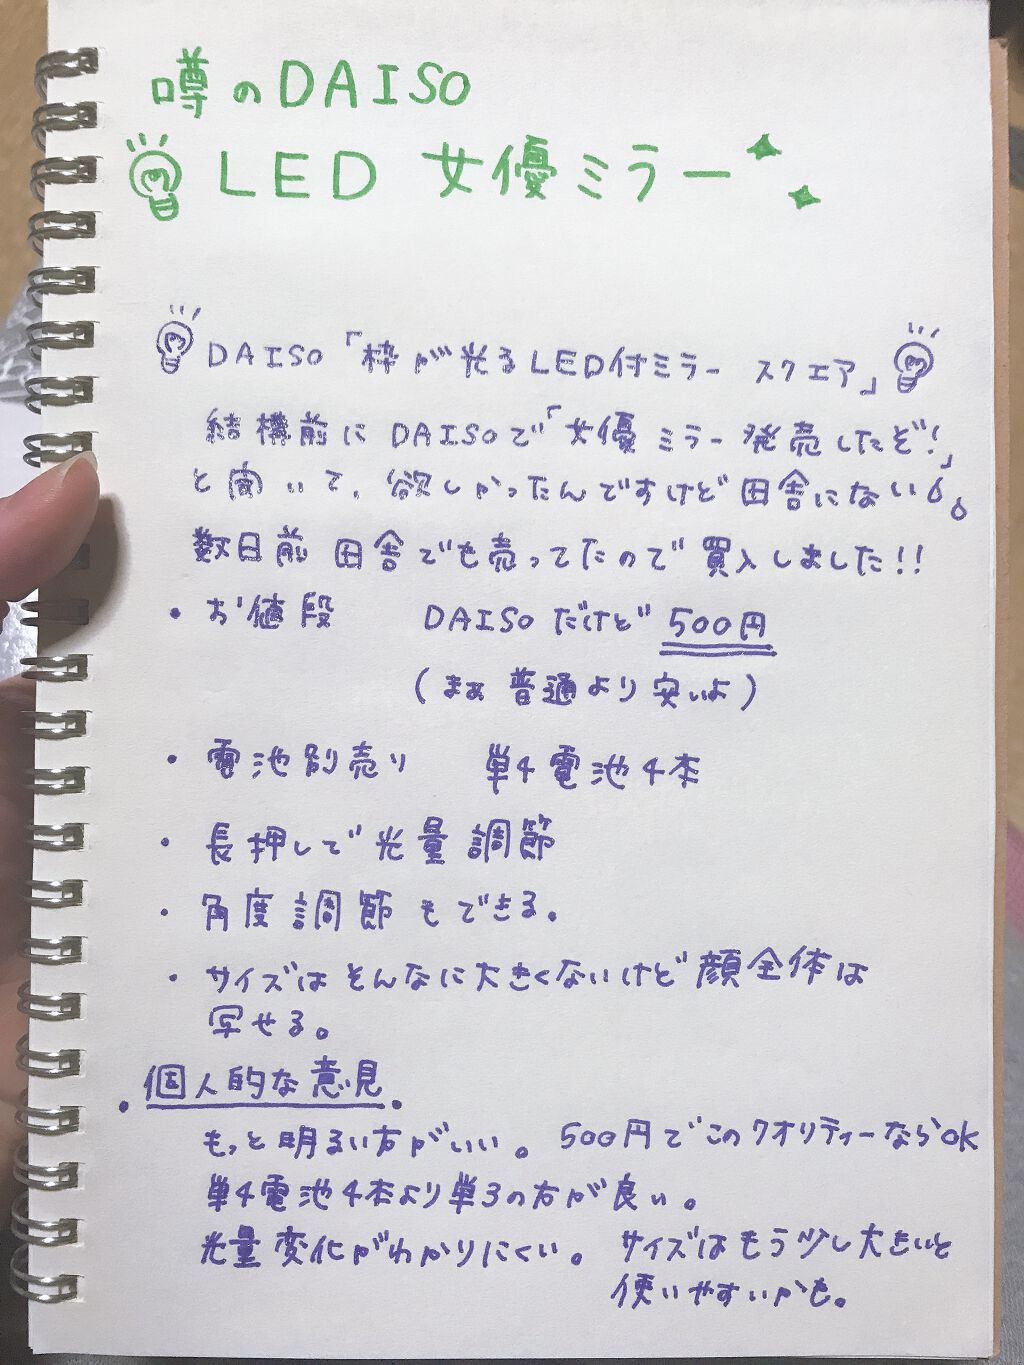 噂のDAISO
LED 女優ミラー
DAISO「枠が光るLED付ミラー スクエア」
結構前に DAISOで「女優ミラー発売したぞ!」
と聞いて、欲しかったんですけど田舎にない
数日前 田舎でも売ってたので買入しました!!
・お値段 DAISOだけど 500円
(まぁ 普通より安いよ)
・電池別売り 単4電池4本
・長押しで光量調節
・角度調節もできる。
・サイズはそんなに大きくないけど顔全体は
写せる。
・個人的な意見・
もっと明るい方がいい。 500円でこのクオリティーならOK
単4電池4本より単3の方が良い。
光量変化がわかりにくい。 サイズはもう少し大きいと
使いやすいかも。